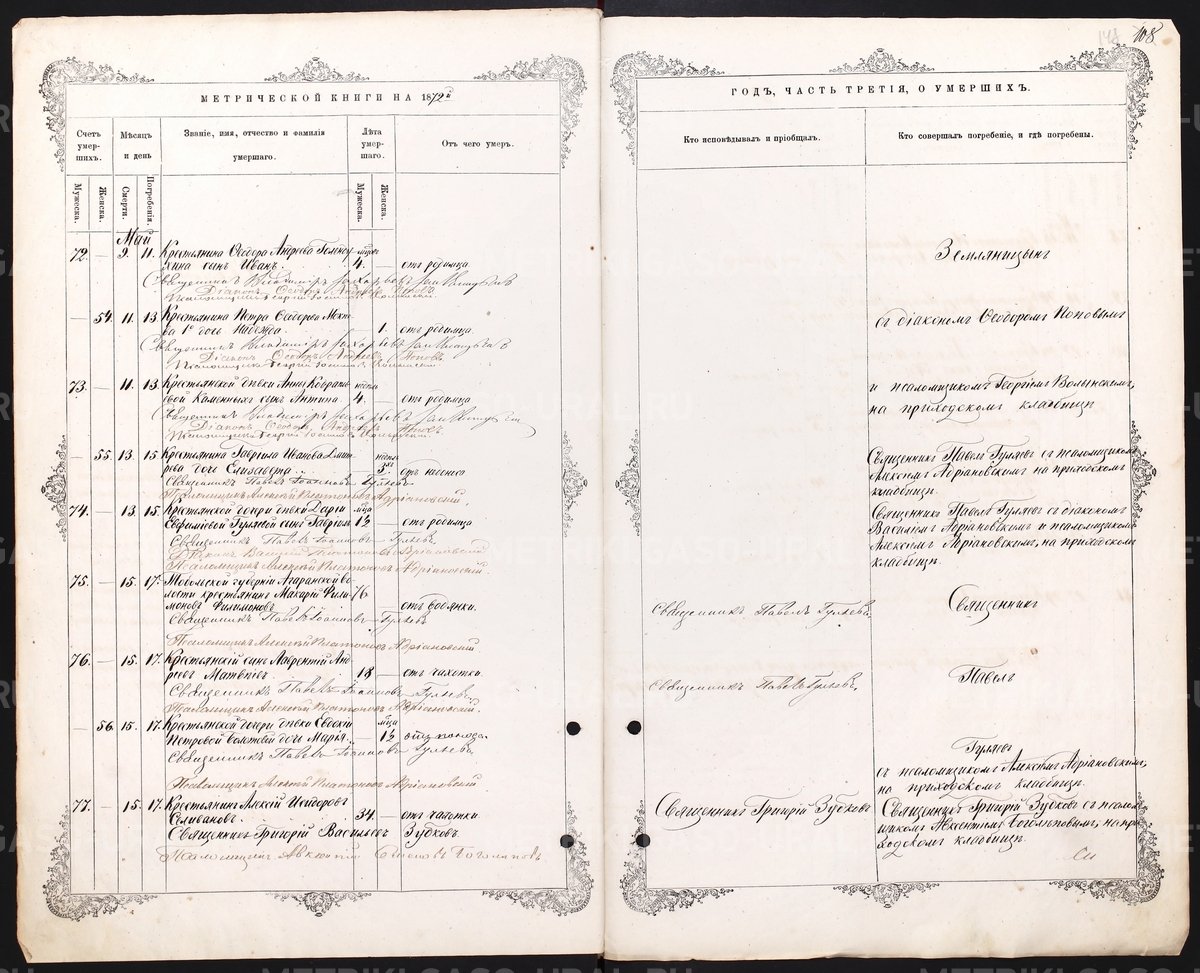 108
МЕТРИЧЕСКОЙ КНИГИ НА 1872й
ГОДЪ, ЧАСТЬ ТРЕТІЯ, О УМЕРШИХЪ.
Счетъ умершихъ.
Мѣсяцъ и день
Званіе, имя, отчество и фамилія умершаго.
Лѣта умершаго.
Отъ чего умеръ.
Кто исповѣдывалъ и пріобщалъ.
Кто совершалъ погребеніе, и гдѣ погребены.
Мужеска.
Женска.
Смерти.
Погребенія.
Мужеска.
Женска.
Май
72. — 9. 11. Крестьянина Ѳеодора Андреева
сынъ Иванъ. 4. — отъ родимца
Священникъ Владиміръ
Діаконъ Ѳеодоръ Андреевъ Поповъ
Псаломщикъ Георгій Волынскій.
— 54. 11. 13. Крестьянина Петра Ѳеодорова
дочь Надежда. — 1. отъ родимца.
Священникъ Владиміръ
Діаконъ Ѳеодоръ Андреевъ Поповъ
Псаломщикъ Георгій Волынскій
73. — 11. 13. Крестьянской дѣвки Анны
Каменныхъ сынъ Антипа. 4. — отъ родимца
Священникъ Владиміръ
Діаконъ Ѳеодоръ Андреевъ Поповъ
Псаломщикъ Георгій Волынскій.
— 55. 13. 15. Крестьянина Гавріила Иванова
дочь Елисавета. 3хъ
Священникъ Павелъ Іоанновъ Гуляевъ
Псаломщикъ Алексѣй Платоновъ Адріановскій.
74. — 13. 15. Крестьянской дочери дѣвки Дарьи
Гуляевой сынъ Гавріилъ 1½ — отъ родимца
Священникъ Павелъ Іоанновъ Гуляевъ
Діаконъ Василій Платоновъ Адріановскій
Псаломщикъ Алексѣй Платоновъ Адріановскій.
75. — 15. 17. Тобольской губерніи Агаракской во-
лости крестьянинъ Макарій Фили- 76
моновъ Филимоновъ отъ водянки.
Священникъ Павелъ Іоанновъ Гуляевъ
Псаломщикъ Алексѣй Платоновъ Адріановскій.
76. — 15. 17. Крестьянскій сынъ Лаврентій Анд-
реевъ Матвѣевъ. 18 — отъ чахотки
Священникъ Павелъ Іоанновъ Гуляевъ
Псаломщикъ Алексѣй Платоновъ Адріановскій.
— 56. 15. 17. Крестьянской дочери дѣвки Евдокіи
Петровой дочь Марія. — 1½ отъ поноса.
Священникъ Павелъ Іоанновъ Гуляевъ
Псаломщикъ Алексѣй Платоновъ Адріановскій
77. — 15. 17. Крестьянинъ Алексій Исидоровъ
Селивановъ. 34. — отъ чахотки
Священникъ Григорій Васильевъ Зубковъ.
Псаломщикъ
Священникъ Павелъ Гуляевъ.
Священникъ Павелъ Гуляевъ.
Священникъ Григорій Зубковъ
Земляницынъ
съ діакономъ Ѳеодоромъ Поповымъ
и псаломщикомъ Георгіемъ Волынскимъ,
на приходскомъ кладбищѣ.
Священникъ Павелъ Гуляевъ съ псаломщикомъ
Алексѣемъ Адріановскимъ на приходскомъ
кладбищѣ.
Священникъ Павелъ Гуляевъ съ діакономъ
Василіемъ Адріановскимъ и псаломщикомъ
Алексѣемъ Адріановскимъ, на приходскомъ
кладбищѣ.
Священникъ
Павелъ
Гуляевъ
съ псаломщикомъ Алексѣемъ Адріановскимъ,
на приходскомъ кладбищѣ.
Священникъ Григорій Зубковъ съ псалом-
щикомъ на при-
ходскомъ кладбищѣ.